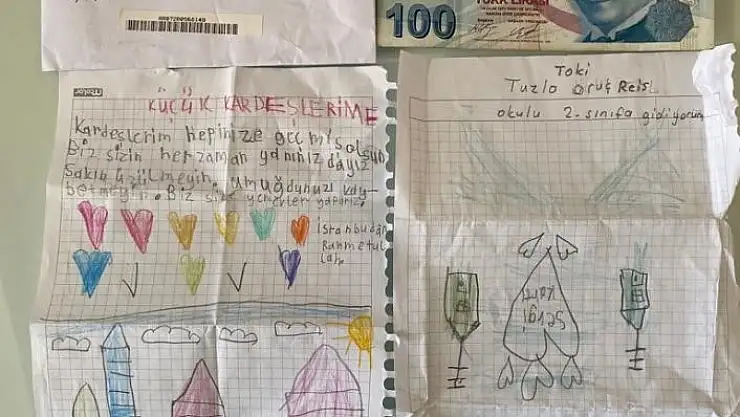 00072009641​40
TÜRK LİRASI
100
molor
KÜÇÜK KARDEŞLERİME
Kardeşlerim hepinize geçmiş olsun
Biz sizin her zaman yanınızdayız
Sakın üzülmeyin, umuğdunuzu kay-
betmeyin. Biz size yemekler yaparız.
İstanbuldan
Rahmetul
lah.
Toki
Tuzla Oruç Reis
okulu 2. sınıfa gidiyorum
Sevgi